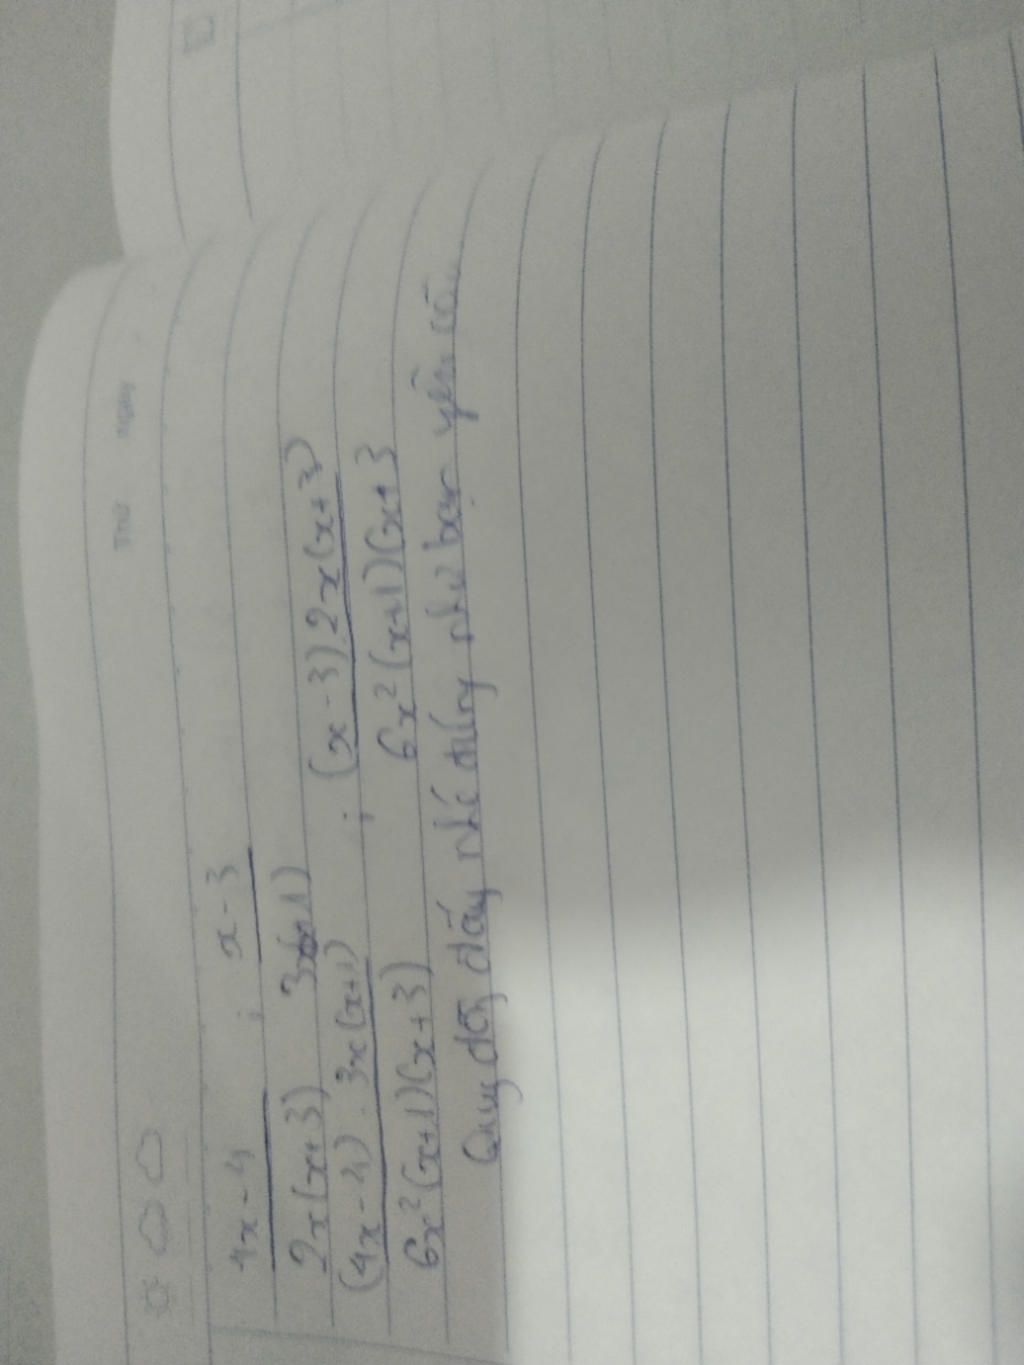 Thứ Ngày
4x-4 ; x-3
2x(x+3) 3x(x+1)
(4x-4).3x(x+1) ; (x-3).2x(x+3)
6x²(x+1)(x+3) 6x²(x+1)(x+3
Quy đồng đấy nhé đúng như bạn yêu cầu